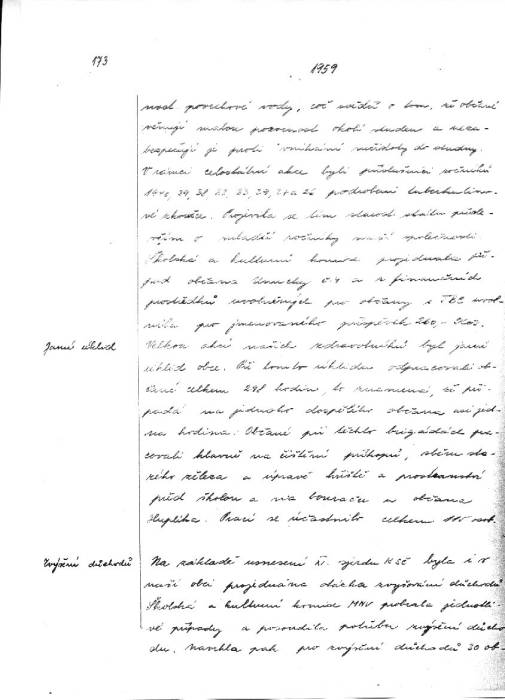 173
1959
nost povrchové vody, což svědčí o tom, že občané
věnují malou pozornost okolí studen a neza-
bezpečují je proti vnikání nečistoty do studny.
V rámci celostátní akce byli příslušníci ročníků
podrobeni tuberkulino-
vé zkoušce. Projevila se tím starost státu přede-
vším o mladší ročníky naší společnosti.
Školská a kulturní komise projednala pří-
pad občana č. 4 a z finančních
prostředků uvolněných pro občany s TBC uvol-
nila pro jmenovaného příspěvek 260.- Kčs.
Jarní úklid
Velkou akcí našich zdravotníků byl jarní
úklid obce. Při tomto úklidu odpracovali ob-
čané celkem 298 hodin, to znamená, že při-
padá na jednoho dospělého občana asi jed-
na hodina. Občané při těchto brigádách pra-
covali hlavně na čištění příkopů, sběru sta-
rého železa a úpravě hřiště a prostranství
před školou a na bouračce u občana
Huplíka. Prací se účastnilo celkem osob.
Zvýšení důchodů
Na základě usnesení XI. sjezdu KSČ byla i v
naší obci projednána otázka zvyšování důchodů.
Školská a kulturní komise MNV probrala jednotli-
vé případy a posoudila potřebu zvýšení důcho-
du. Navrhla pak pro zvýšení důchodů 30 ob-